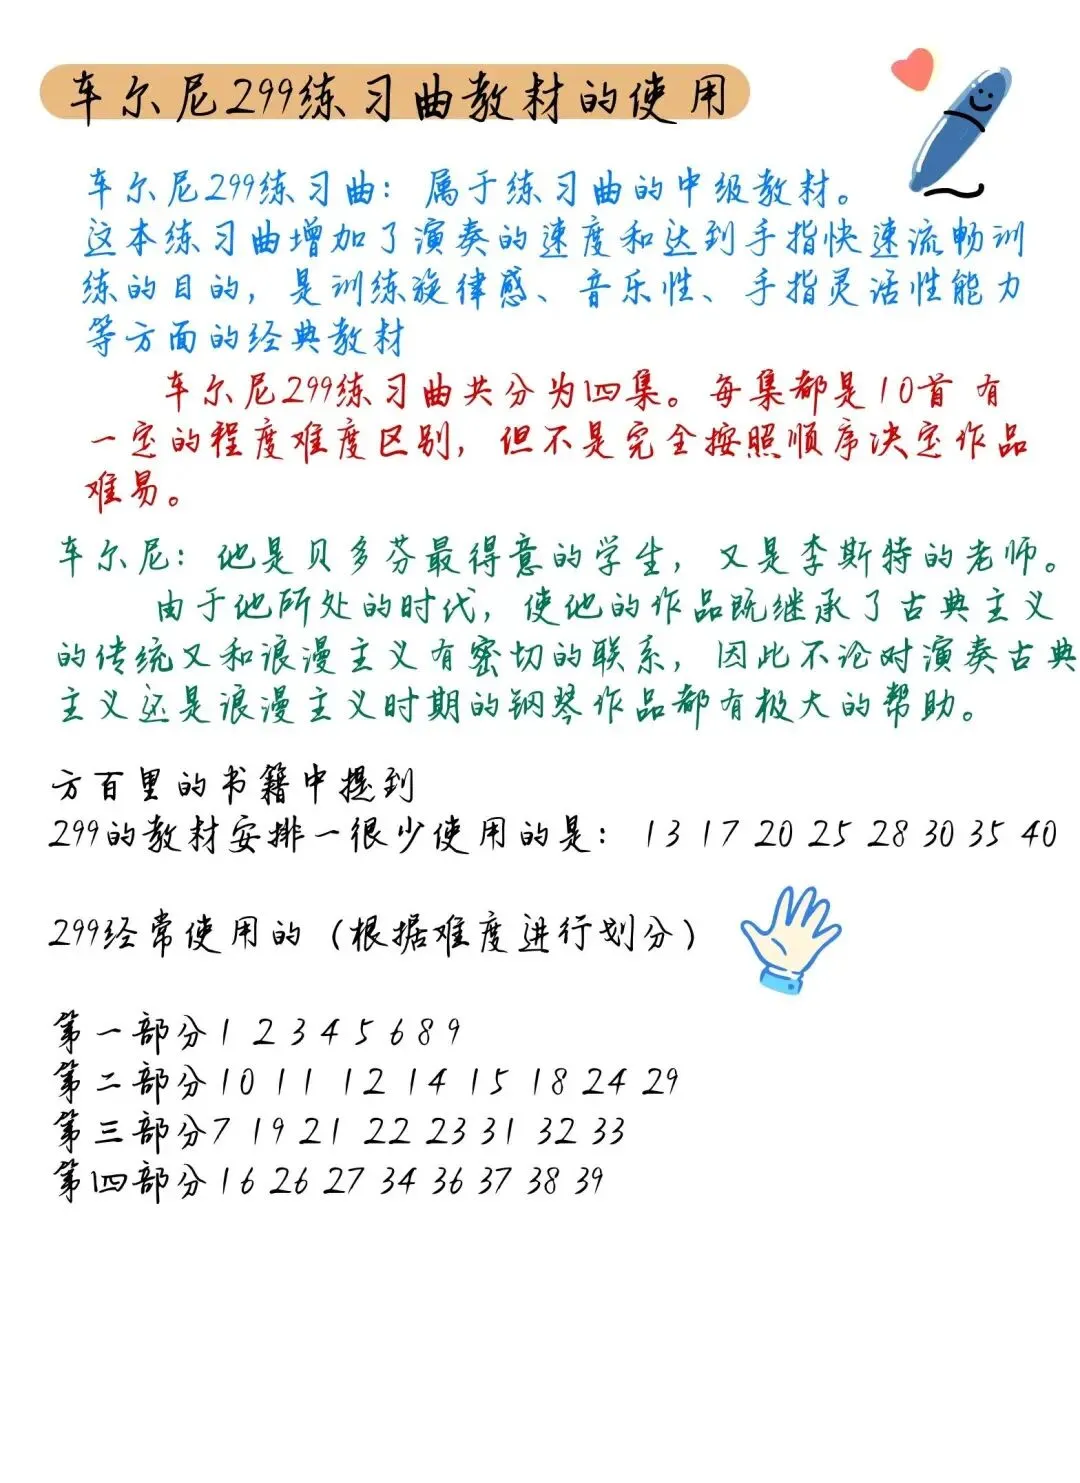 车尔尼299练习曲教材的使用
车尔尼299练习曲：属于练习曲的中级教材。
这本练习曲增加了演奏的速度和达到手指快速流畅训
练的目的，是训练旋律感、音乐性、手指灵活性能力
等方面的经典教材
车尔尼299练习曲共分为四集。每集都是10首 有
一定的程度难度区别，但不是完全按照顺序决定作品
难易。
车尔尼：他是贝多芬最得意的学生，又是李斯特的老师。
由于他所处的时代，使他的作品既继承了古典主义
的传统又和浪漫主义有密切的联系，因此不论对演奏古典
主义还是浪漫主义时期的钢琴作品都有极大的帮助。
方百里的书籍中提到
299的教材安排一很少使用的是：13 17 20 25 28 30 35 40
299经常使用的（根据难度进行划分）
第一部分1 2 3 4 5 6 8 9
第二部分10 11 12 14 15 18 24 29
第三部分7 19 21 22 23 31 32 33
第四部分16 26 27 34 36 37 38 39